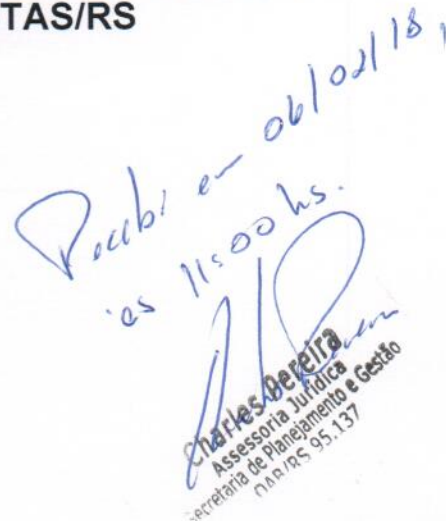 TAS/RS
Recebi em 06/02/18,
às 11:00 hs.
Charles Pereira
Assessoria Jurídica
Secretaria de Planejamento e Gestão
OAB/RS 95.137